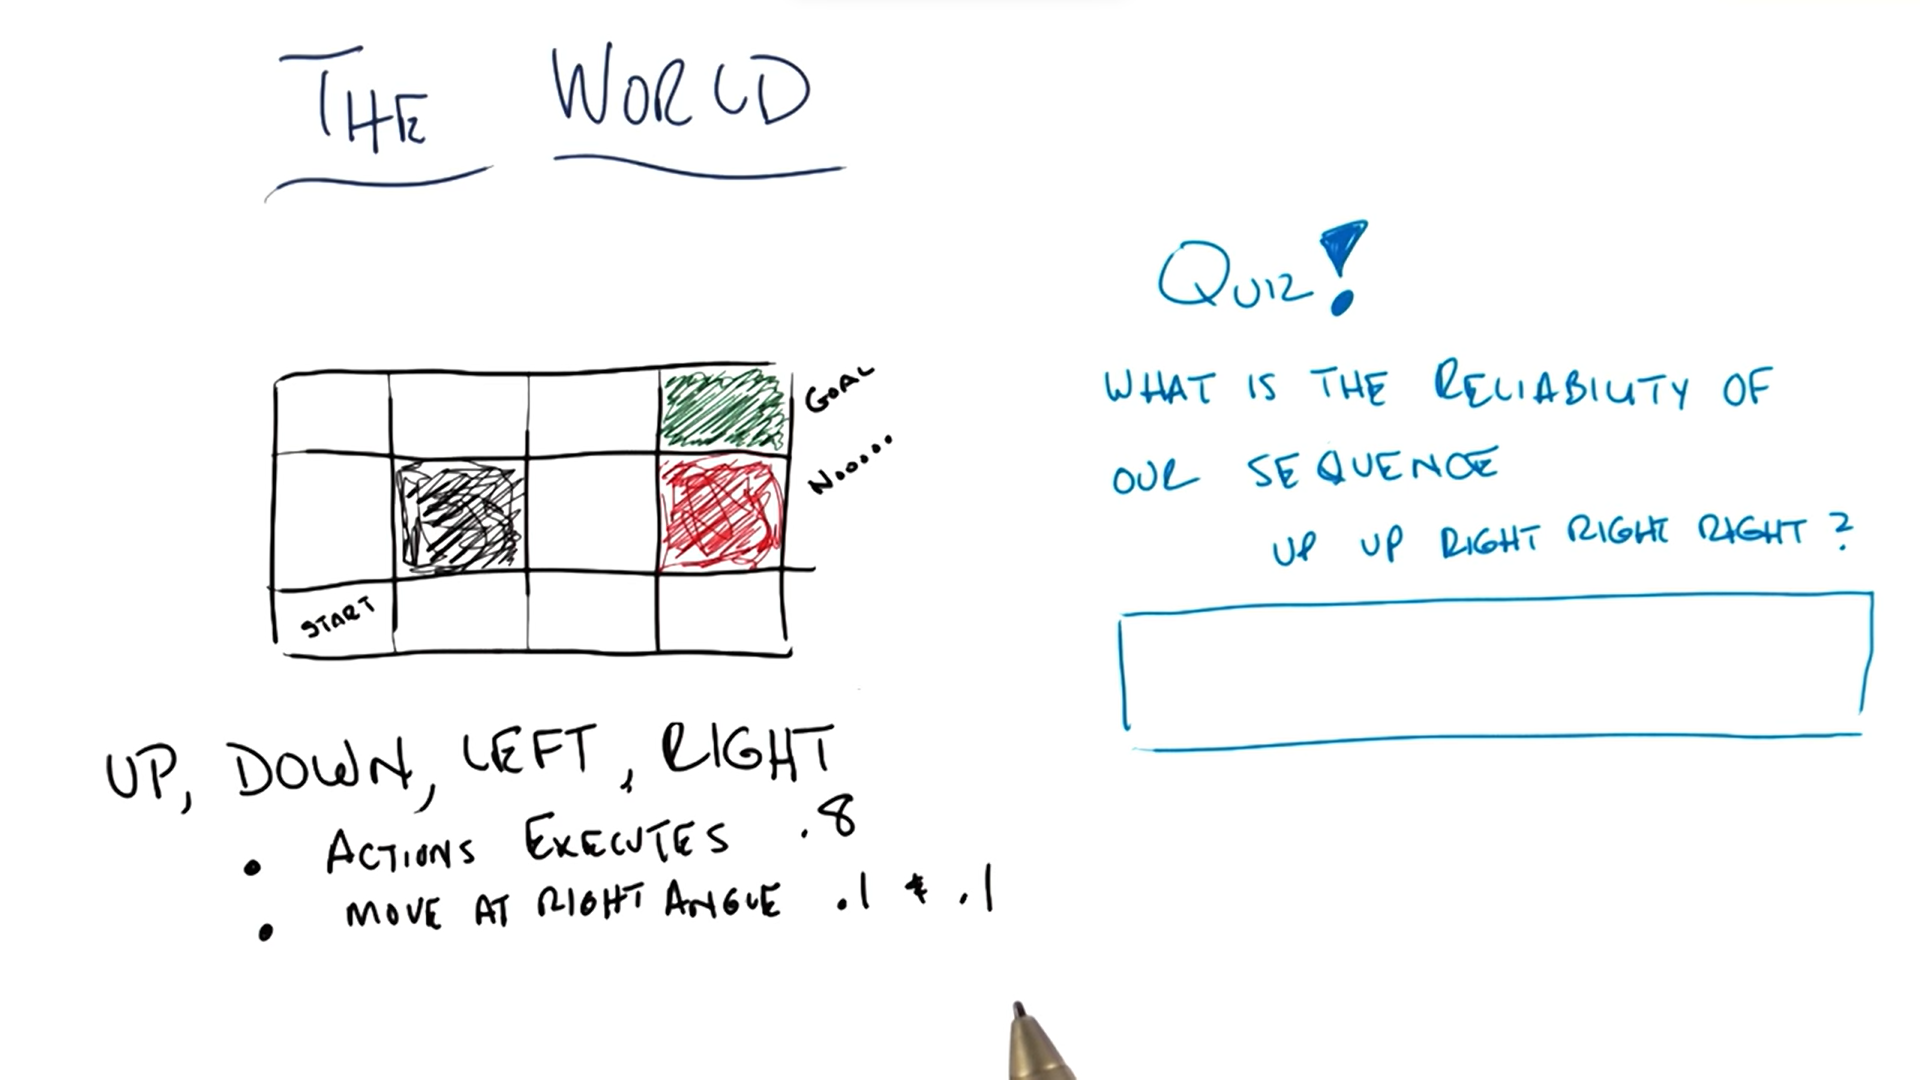 THE WORLD
GOAL
Noooo....
START
UP, DOWN, LEFT, RIGHT
• ACTIONS EXECUTES .8
• MOVE AT RIGHT ANGLE .1 & .1
QUIZ!
WHAT IS THE RELIABILITY OF
OUR SEQUENCE
UP UP RIGHT RIGHT RIGHT?